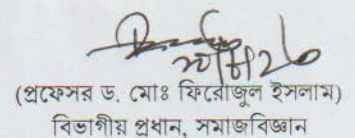 (প্রফেসর ড. মোঃ ফিরোজুল ইসলাম)
বিভাগীয় প্রধান, সমাজবিজ্ঞান